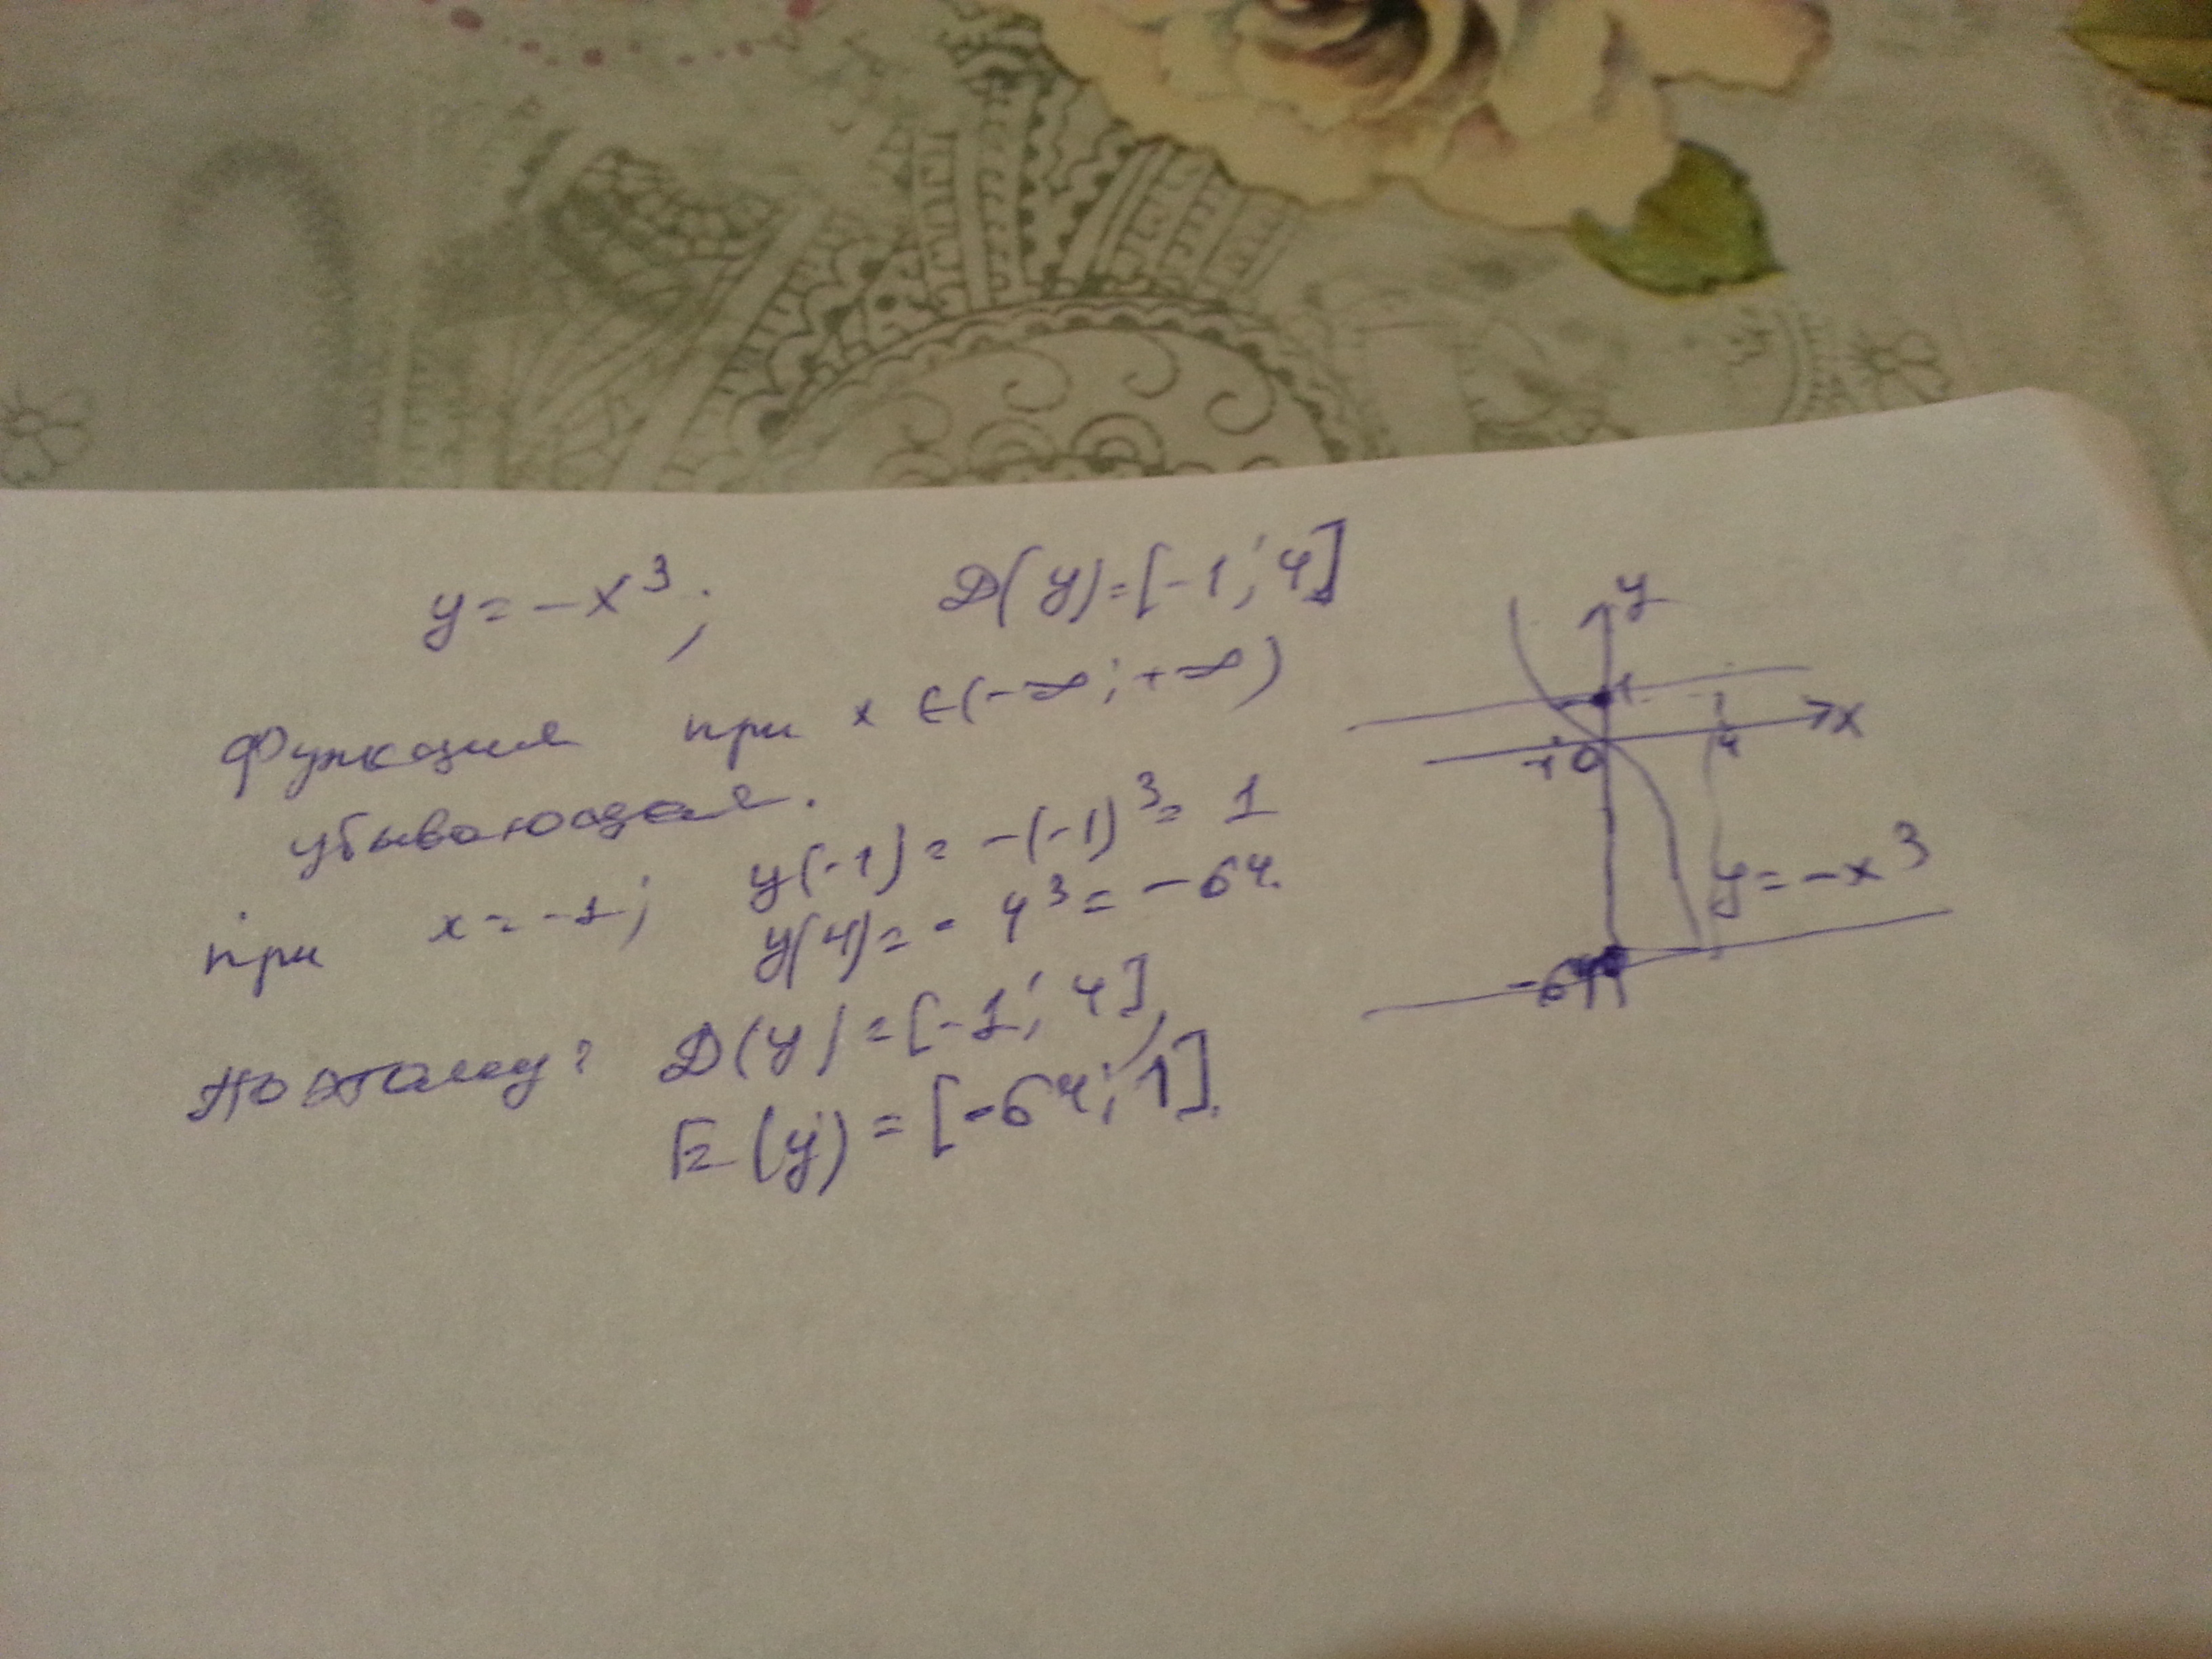 y = -x³; D(y)=[-1; 4]
Функция при x ∈(-∞; +∞)
убывающая.
при x = -1; y(-1) = -(-1)³= 1
y(4)= - 4³ = -64.
Поэтому: D(y) = [-1; 4],
E(y) = [-64; 1].
y
1
4
x
-1 0
y = -x³
-64